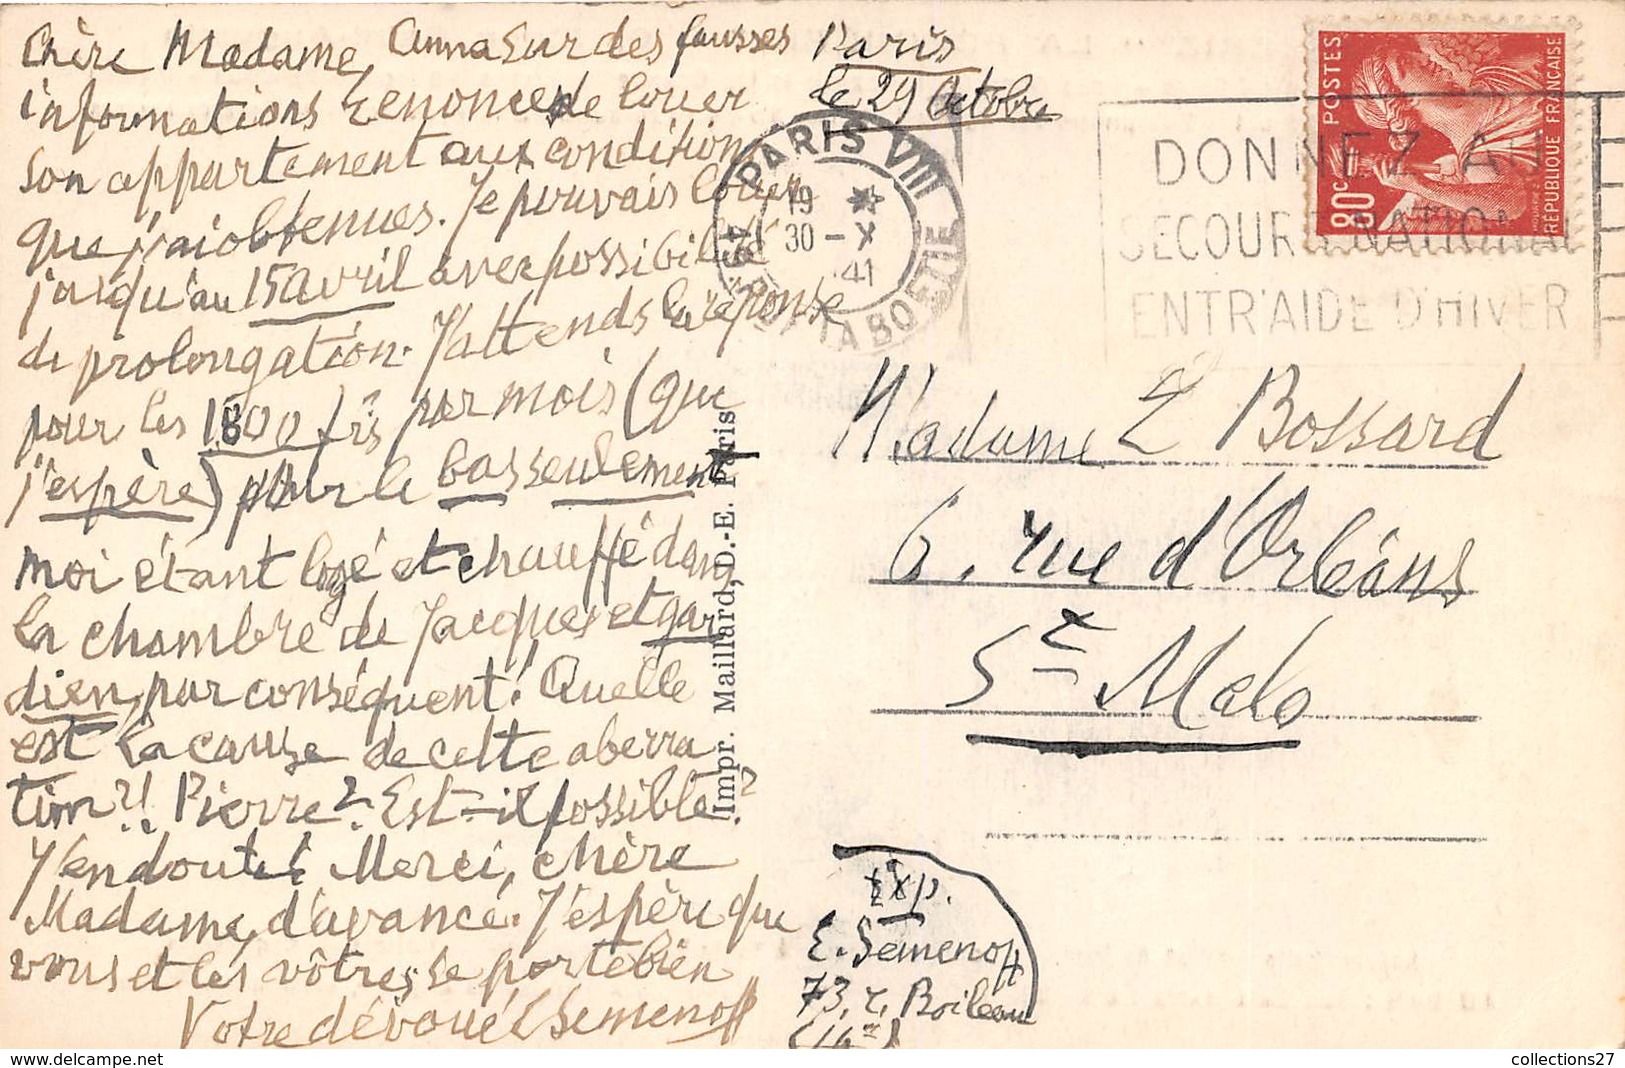 Chère Madame, Anna sur des fausses
informations renonce de louer
son appartement aux condition
que j'ai obtenues. Je pouvais louer
jusqu'au 15 avril avec possibilité
de prolongation. J'attends la réponse
pour les 1800 frs par mois (que
j'espère) pour le bas seulement
moi étant logé et chauffé dans
la chambre de Jacques et gar
dien, par conséquent! Quelle
est la cause de cette aberra
tion?! Pierre? Est-il possible?
J'en doute! Merci, chère
Madame, d'avance. J'espère que
vous et les vôtres se porte bien
Votre dévoué E Semenoff
Paris
le 29 Octobre
PARIS VIII
19
30 - X
41
LA BOETIE
DONNEZ AU
SECOURS NATIONAL
ENTR'AIDE D'HIVER
POSTES
80c
RÉPUBLIQUE FRANÇAISE
Madame E Bossard
6, rue d'Orléans
St Malo
Exp.
E. Semenoff
73, r. Boileau
(16e)
Impr. Maillard, D.-E. Paris
collections27